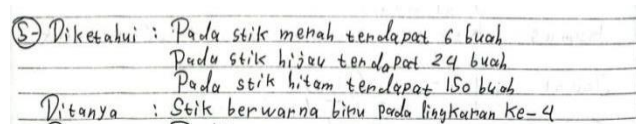 5- Diketahui : Pada stik merah terdapat 6 buah
Pada stik hijau terdapat 24 buah
Pada stik hitam terdapat 150 buah
Ditanya : Stik berwarna biru pada lingkaran ke-4